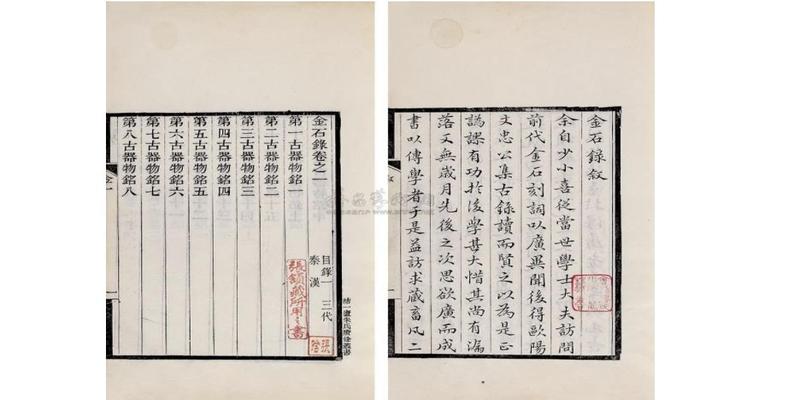 金石錄叙
余自少小喜從當世學士大夫訪問
前代金石刻詞以廣異聞後得歐陽
文忠公集古錄讀而賢之以為是正
譌謬有功於後學甚大惜其尚有漏
落又無歲月先後之次思欲廣而成
書以傳學者于是益訪求藏畜凡二
結一廬朱氏賸餘叢書
金石錄卷之一
目錄一 三代
秦 漢
第一古器物銘一
第二古器物銘二
第三古器物銘三
第四古器物銘四
第五古器物銘五
第六古器物銘六
第七古器物銘七
第八古器物銘八
張頷藏所用之書